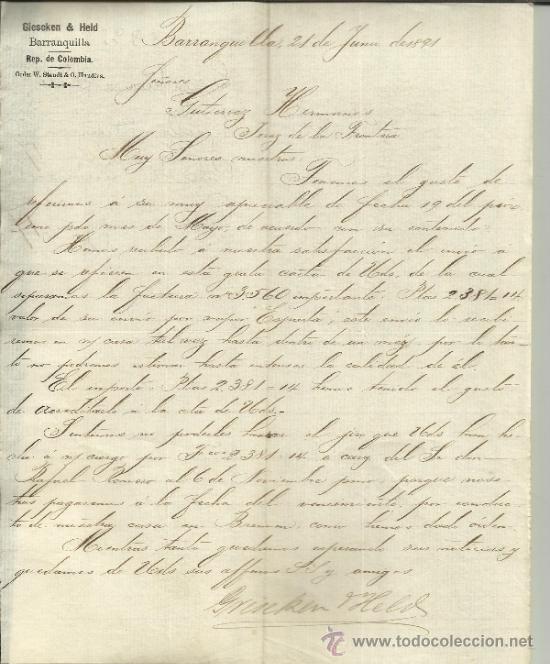 Gieseken & Held
Barranquilla
Rep. de Colombia.
Barranquilla, 21 de Junio de 1891
Señores
Gutierrez Hermanos
Jerez de la Frontera
Muy Señores nuestros
Tenemos el gusto de
referirnos á su muy apreciable de fecha 19 del próx
imo pdo. mes de Mayo, de acuerdo con su contenido.
Hemos recibido a nuestra satisfaccion el envio a
que se refieren en esta grata carta de Uds, de la cual
separamos la factura nº 3.560 importante Ptas 2.381=14
valor de su envio por vapor España, este envio lo recibi
remos en n/ casa tal vez hasta dentro de un mes, por lo tan
to no podremos hasta entonces la calidad de él.
El importe Ptas 2.381=14 hemos tenido el gusto
de acreditarlo á la cta de Uds.
Sentimos no poderles el giro que Uds han he
cho á n/ cargo por 2.381.14 a del Sr. don
Rafael Romero al 6 de Noviembre pmo, porque noso
tros pagaremos á la fecha del vencimiento, por conduc
to de nuestra casa en Bremen como hemos dado orden.
Mientras tanto quedamos esperando sus noticias y
quedamos de Uds sus affmos SS y amigos
Gieseken & Held
todocoleccion
www.todocoleccion.net